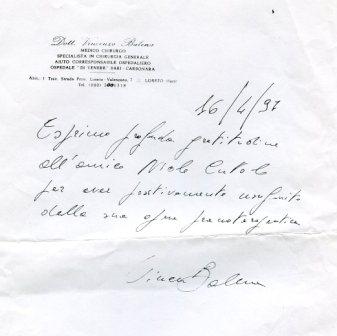 Dott. Vincenzo Balena
MEDICO CHIRURGO
SPECIALISTA IN CHIRURGIA GENERALE
AIUTO CORRESPONSABILE OSPEDALIERO
OSPEDALE "DI VENERE" BARI - CARBONARA
Abit.: I Trav. Strada Prov. Loseto - Valenzano, 7 LOSETO (Bari)
Tel. (080)
16/4/97
Esprimo profonda gratitudine
all'amico Nicola Cutolo
per aver positivamente usufruito
della sua opera pranoterapeutica
Vincenzo Balena